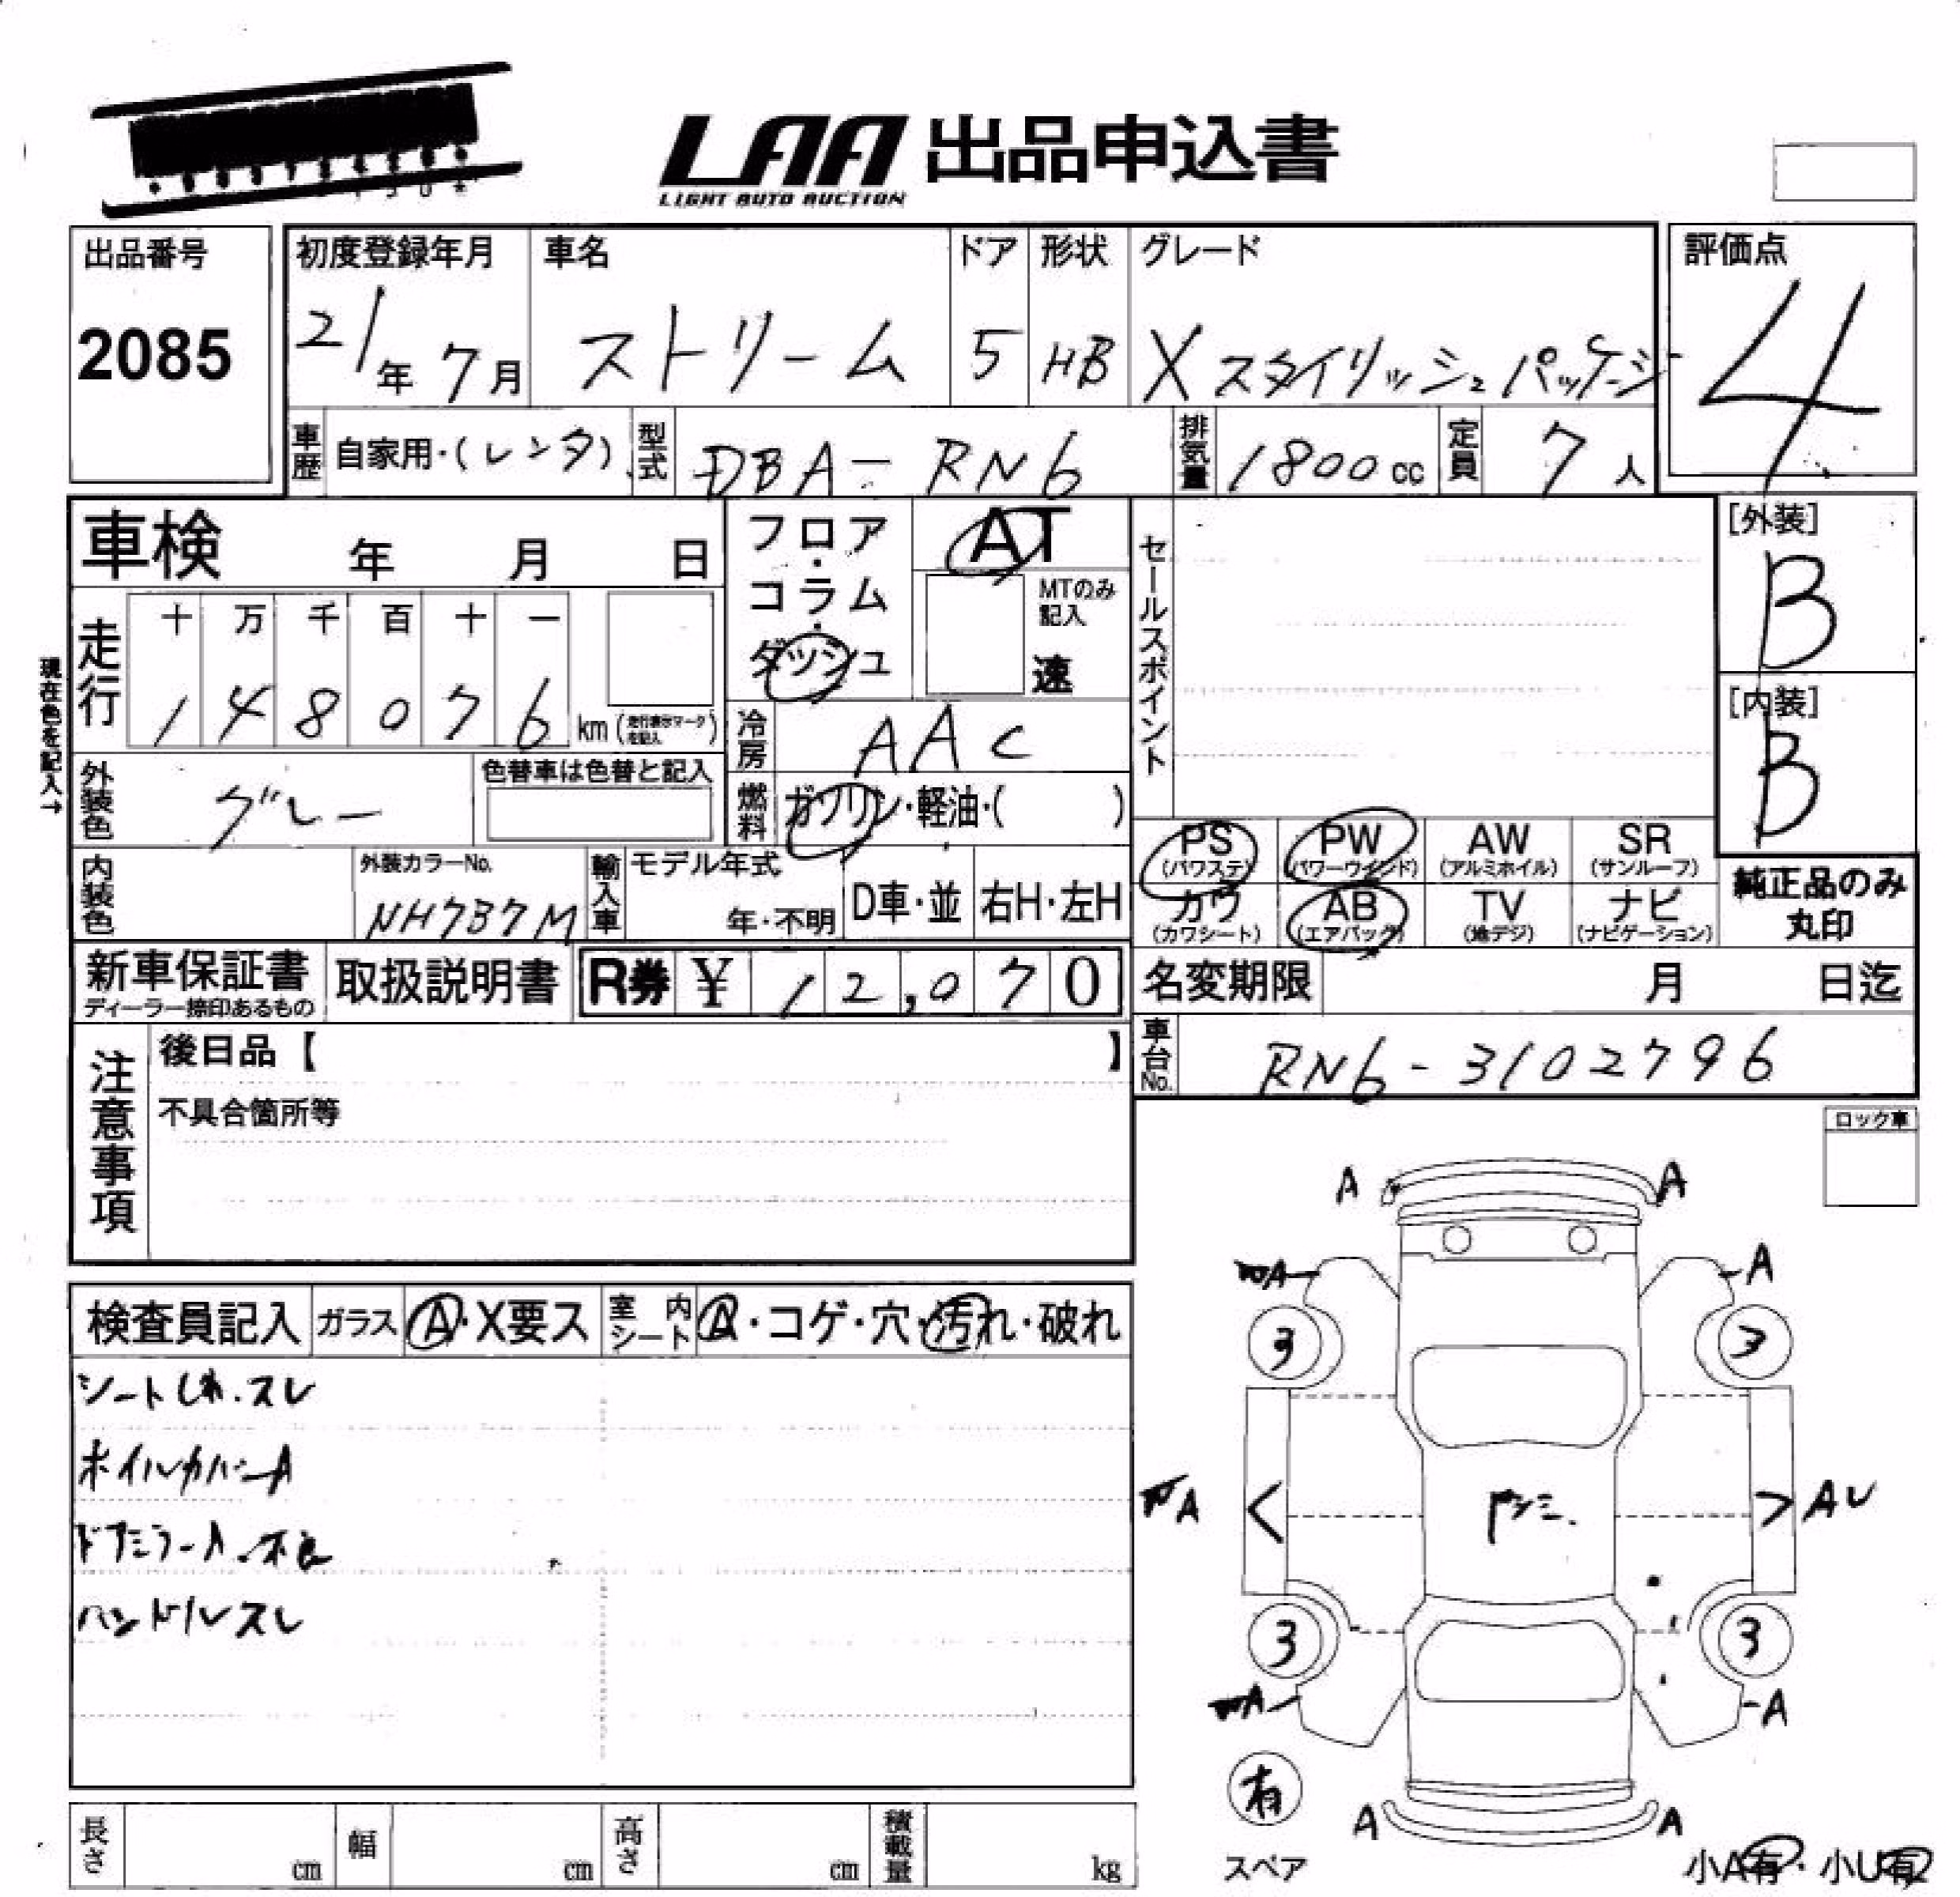 LAA 出品申込書
LIGHT AUTO AUCTION
出品番号
2085
初度登録年月
21年 7月
車名
ストリーム
ドア
5
形状
HB
グレード
X スタイリッシュパッケージ
評価点
4
車歴 自家用・(レンタ)
型式 DBA-RN6
排気量 1800cc
定員 7人
車検 年 月 日
フロア・コラム・ダッシュ
AT
MTのみ記入
速
セールスポイント
[外装]
B
[内装]
B
現在色を記入→
走行
十 万 千 百 十 一
1 4 8 0 7 6 km (走行表示マークを記入)
冷房 AAC
外装色 グレー
色替車は色替と記入
燃料 ガソリン・軽油・( )
PS (パワステ)
PW (パワーウインド)
AW (アルミホイル)
SR (サンルーフ)
カワ (カワシート)
AB (エアバック)
TV (地デジ)
ナビ (ナビゲーション)
純正品のみ丸印
内装色
外装カラーNo.
NH737M
輸入車
モデル年式
年・不明
D車・並
右H・左H
新車保証書
ディーラー捺印あるもの
取扱説明書
R券 ¥ 12,070
名変期限 月 日迄
車台No. RN6-3102796
注意事項
後日品【 】
不具合箇所等
ロック車
検査員記入
ガラス A・X要ス
室内シート A・コゲ・穴・汚れ・破れ
シートしわ.スレ
ホイルカバーA
ドアミラーA.不良
ハンドルスレ
A A
A A
3 3
A AU
3 3
A A
有
スペア
A A
小A有・小U有
長さ cm
幅 cm
高さ cm
積載量 kg